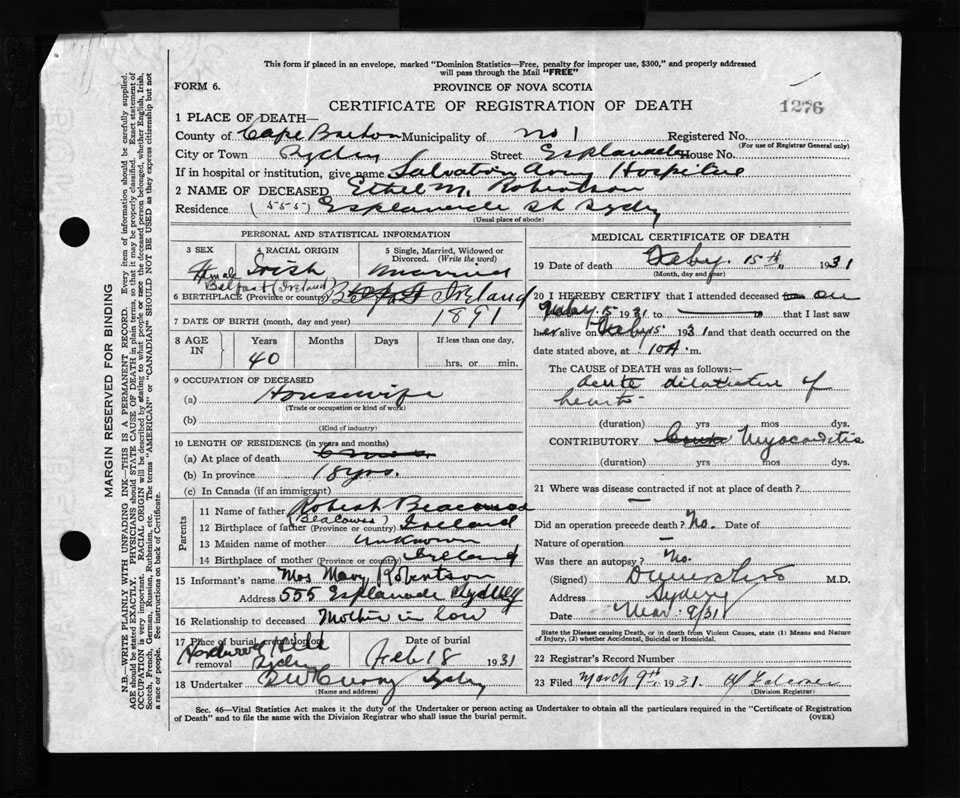 This form if placed in an envelope, marked "Dominion Statistics—Free, penalty for improper use, $300," and properly addressed
will pass through the Mail "FREE"
FORM 6.
PROVINCE OF NOVA SCOTIA
CERTIFICATE OF REGISTRATION OF DEATH
1276
1 PLACE OF DEATH—
County of Cape Breton Municipality of No 1 Registered No.
(For use of Registrar General only)
City or Town Sydney Street Esplanade House No.
If in hospital or institution, give name Salvation Army Hospital
2 NAME OF DECEASED Ethel M. Robertson
Residence (555) Esplanade St Sydney
(Usual place of abode)
PERSONAL AND STATISTICAL INFORMATION
3 SEX 4 RACIAL ORIGIN 5 Single, Married, Widowed or
Divorced. (Write the word)
Female Irish Married
Belfast (Ireland)
6 BIRTHPLACE (Province or country) Belfast Ireland
7 DATE OF BIRTH (month, day and year) 1891
8 AGE IN Years Months Days If less than one day,
40 hrs. or min.
9 OCCUPATION OF DECEASED
(a) Housewife
(Trade or occupation or kind of work)
(b)
(Kind of industry)
10 LENGTH OF RESIDENCE (in years and months)
(a) At place of death
(b) In province 18 yrs.
(c) In Canada (if an immigrant)
Parents
11 Name of father Robert
(Beacower)
12 Birthplace of father (Province or country) Ireland
13 Maiden name of mother Unknown
14 Birthplace of mother (Province or country) Ireland
15 Informant's name Mrs Mary Robertson
Address 555 Esplanade Sydney
16 Relationship to deceased Mother in law
17 Place of burial, cremation or
removal Hardwood Hill Sydney
Date of burial
Feb 18 1931
18 Undertaker Sydney
(Name and address)
MEDICAL CERTIFICATE OF DEATH
19 Date of death Feby. 15th, 1931
(Month, day and year)
20 I HEREBY CERTIFY that I attended deceased from on
Feby. 15 1931 to that I last saw
her alive on Feby 15 1931 and that death occurred on
date stated above, at 10 A m.
The CAUSE of DEATH was as follows:—
Acute dilatation of
heart
(duration) yrs mos dys.
CONTRIBUTORY Myocarditis
(duration) yrs mos dys.
21 Where was disease contracted if not at place of death?
Did an operation precede death? No. Date of
Nature of operation —
Was there an autopsy? No.
(Signed) M.D.
Address Sydney
Date Mar. 9/31
State the Disease causing Death, or in death from Violent Causes, state (1) Means and Nature
of Injury, (2) whether Accidental, Suicidal or Homicidal.
22 Registrar's Record Number
23 Filed March 9th, 1931.
(Division Registrar)
Sec. 46—Vital Statistics Act makes it the duty of the Undertaker or person acting as Undertaker to obtain all the particulars required in the "Certificate of Registration
of Death" and to file the same with the Division Registrar who shall issue the burial permit.
(OVER)
MARGIN RESERVED FOR BINDING
N.B.—WRITE PLAINLY WITH UNFADING INK—THIS IS A PERMANENT RECORD. Every item of information should be carefully supplied.
AGE should be stated EXACTLY. PHYSICIANS should STATE CAUSE OF DEATH in plain terms, so that it may be properly classified. Exact statement of
OCCUPATION is very important. RACIAL ORIGIN will be described by stating to what people or race the deceased person belonged, whether English, Irish,
Scotch, French, German, Russian, Ruthenian, etc. The terms "AMERICAN" or "CANADIAN" SHOULD NOT BE USED as they express citizenship but not
a race or people. See instructions on back of Certificate.